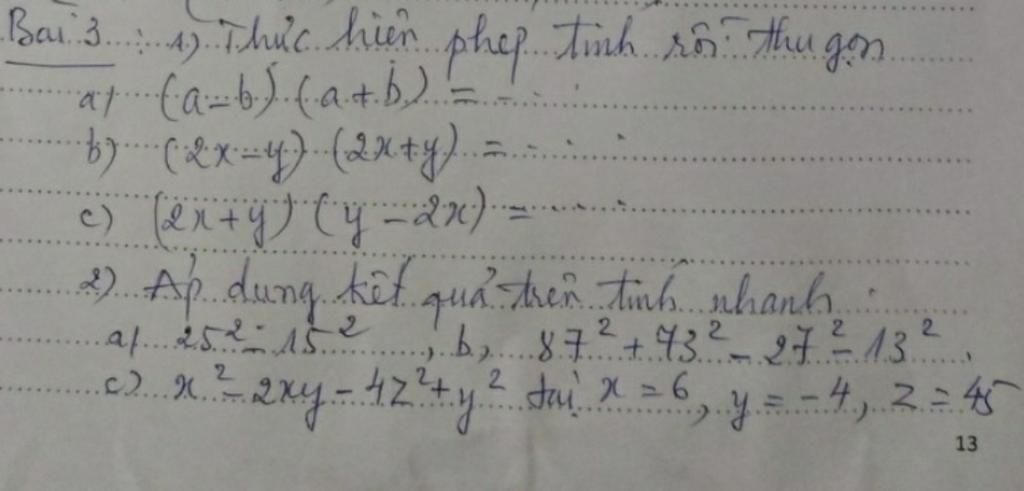 Bài 3 : 1) Thực hiện phép tính rồi thu gọn
a) (a-b) (a+b) = ....
b) (2x-y) (2x+y) = ....
c) (2x+y) (y-2x) = ....
2) Áp dụng kết quả trên tính nhanh :
a) 25² - 15² , b, 87² + 73² - 27² - 13² .
c) x² - 2xy - 4z² + y² tại x = 6, y = -4, z = 45
13